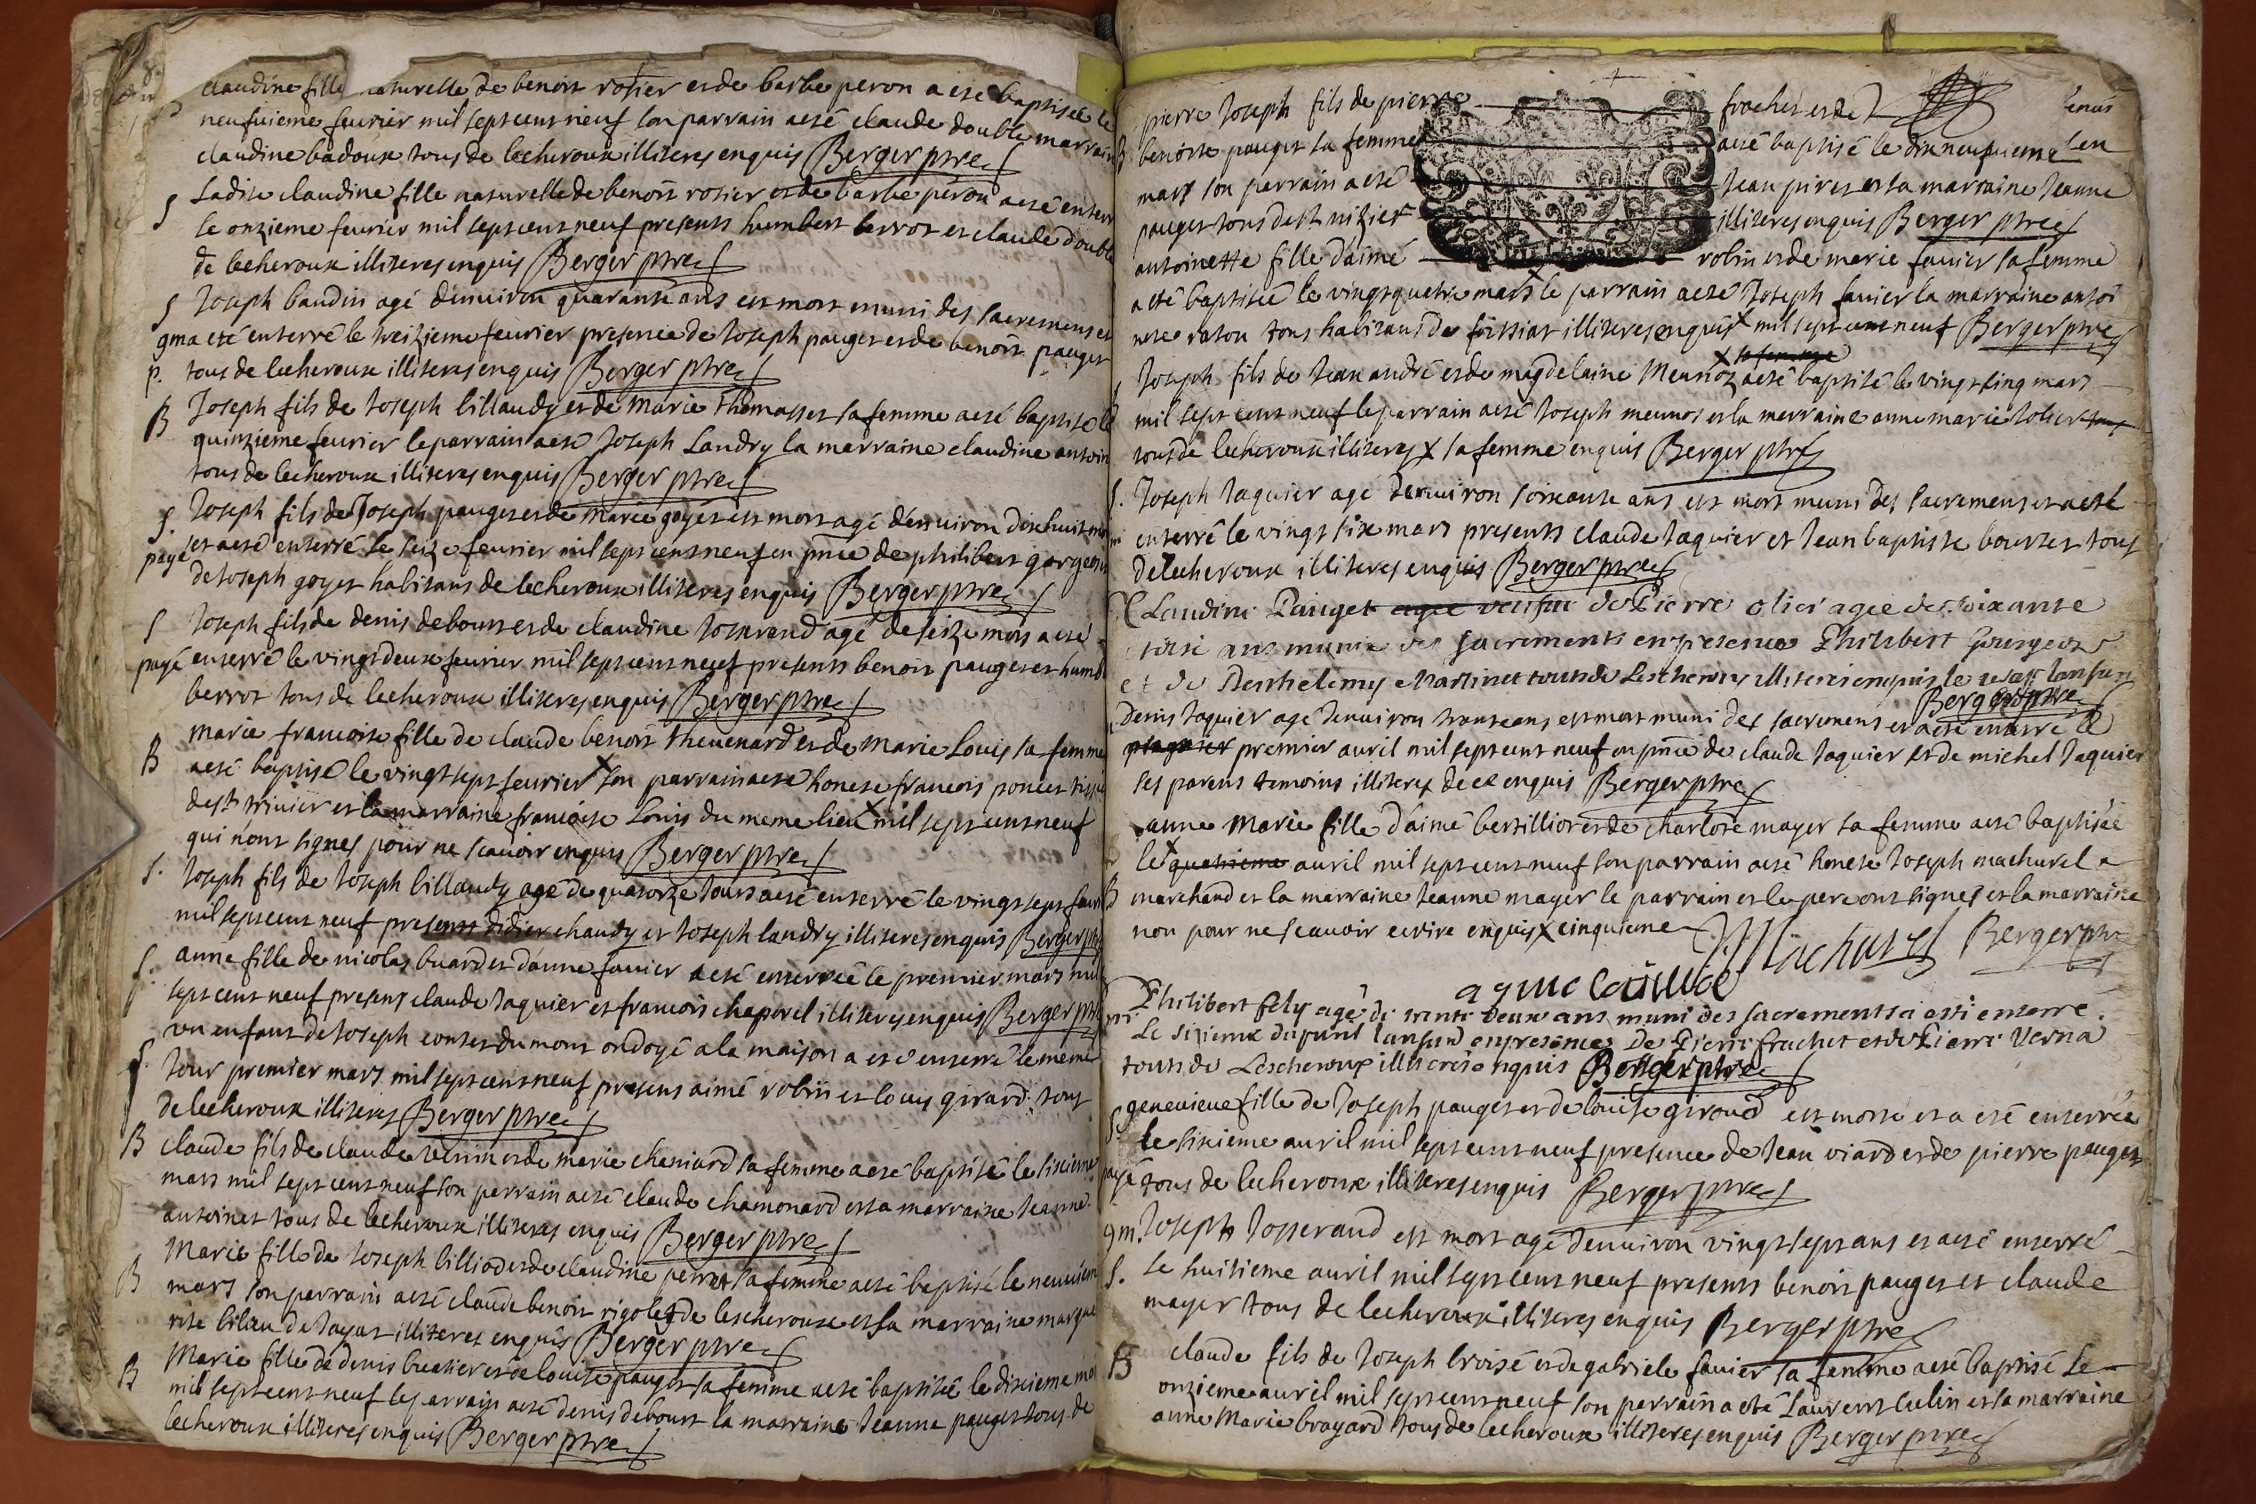 claudine fille naturelle de benoit rosier et de barbe peron a eté baptisée le
neufuieme feurier mil sept cent neuf son parrain a eté claude double marrain
claudine badoux tous de lecheroux illiteres enquis Berger ptre
S Ladite claudine fille naturelle de benoit rosier et de barbe peron a eté enterr
le onzieme feurier mil sept cent neuf presents humbert berrot et claude double
de lecheroux illiteres enquis Berger ptre
S Joseph baudin agé denuiron quarante ans est mort muni des sacremens et
gma eté enterré le treizieme feurier presence de Joseph pauget et de benoit pauget
p. tous de lecheroux illiteres enquis Berger ptre
B Joseph fils de Joseph billaudy et de Marie thomasset sa femme a eté baptisé le
quinzieme feurier le parrain a eté Joseph Landry la marraine claudine antoin
tous de lecheroux illiteres enquis Berger ptre
S. Joseph fils de Joseph pauget et de marie goyet est mort agé denuiron dixhuit moi
payé et a eté enterré le seize feurier mil sept cent neuf en pnce de philibert gorgeon
de Joseph goyet habitans de lecheroux illiteres enquis Berger ptre
S Joseph fils de denis debourt et de claudine Josserand agé de seize mois a eté
payé enterré le vingt deux feurier mil sept cent neuf presents benoit pauget et humb
berrot tous de lecheroux illiteres enquis Berger ptre
B marie francoise fille de claude benoit theuenard et de Marie Louis sa femme
a eté baptisé le vingt sept feurier x son parrain a eté honete francois poncet
de st triuier et la marraine francoise Louis du meme lieu x mil sept cent neuf
qui n'ont signes pour ne scauoir enquis Berger ptre
S. Joseph fils de Joseph billaudy agé de quatorze Jours a eté enterré le vingt sept feuri
mil sept cent neuf presents didier chaudy et Joseph landry illiteres enquis Berger ptre
S. anne fille de nicolas buard et d'anne fauier a eté enterrée le premier mars mil
sept cent neuf presens claude Jaquier et francois chaperel illiteres enquis Berger ptre
S. vn enfant de Joseph contet du mont ondoyé a la maison a eté enterré le meme
Jour premier mars mil sept cent neuf presens aimé robin et louys girard tous
de lecheroux illiteres Berger ptre
B claude fils de claude et de marie chaniard sa femme a eté baptisé le sixieme
mars mil sept cent neuf son parrain a eté claude chamonard et sa marraine Jeanne
antoinet tous de lecheroux illiteres enquis Berger ptre
B Marie fille de Joseph billiod et de claudine perret sa femme a eté baptisé le neuuiem
mars son parrain a eté claude benoit rigolet de lescheroux et sa marraine margue
rite de Jayat illiteres enquis Berger ptre
B Marie fille de denis et de louise pauget sa femme a eté baptisée le dixieme ma
mil sept cent neuf le parrain a eté denis debourt la marraine Jeanne pauget tous de
lecheroux illiteres enquis Berger ptre
pierre Joseph fils de pierre frachet et de
B benoite pauget sa femme a eté baptisé le dixneufuieme
mars son parrain a eté Jean piret et sa marraine Jeanne
pauget tous de st nizier illiteres enquis Berger ptre
antoinette fille d'aimé robin et de marie fauier sa femme
a eté baptisée le vingt quatre mars x le parrain a eté Joseph fauier la marraine antoi
nete raton tous habitans de foissiat illiteres enquis x mil sept cent neuf Berger ptre
x sa femme
Joseph fils de Jean andré et de magdelaine Meunoz a eté baptisé le vingt cinq mars
mil sept cent neuf le parrain a eté Joseph meunoz et la marraine anne marie tous
tous de lecheroux illiteres x sa femme enquis Berger ptre
S. Joseph Jaquier agé denuiron soixante ans est mort muni des sacremens et a eté
enterré le vingt six mars presents claude Jaquier et Jean baptiste bourset tous
de lecheroux illiteres enquis Berger ptre
Claudine Pauget agee veufue de Pierre olier agee de soixante
ans munie des sacrements en presence Philibert Gourgeon
et de Berthelemy Martinet touts de Lescheroux illiteres enquis le
Berger ptre
Denis Jaquier agé denuiron trente ans est mort muni des sacremens et a eté enterré le
premier auril mil sept cent neuf en pnce de claude Jaquier et de michel Jaquier
ses parens temoins illiteres de ce enquis Berger ptre
anne Marie fille d'aimé bertilliot et de charlote mayer sa femme a eté baptisée
le x quatrieme auril mil sept cent neuf son parrain a eté honete Joseph machurel
B marchand et la marraine Jeanne mayer le parrain et le pere ont signes et la marraine
non pour ne scauoir ecrire enquis x cinquieme Machurel Berger ptre
Philibert fely agé de trente deux ans muni des sacrements a esté enterré
Le sixieme d'apuril l'an sud en presence de Pierre frachet et de Pierre Verna
touts de Lescheroux illiteres enquis Berger ptre
S. geneuieue fille de Joseph pauget et de louise giroud est morte et a eté enterrée
le sixieme auril mil sept cent neuf presence de Jean viard et de pierre pauget
payé tous de lecheroux illiteres enquis Berger ptre
gm. Joseph Josserand est mort agé denuiron vingt sept ans et a eté enterré
S. le huitieme auril mil sept cent neuf presents benoit pauget et claude
mayer tous de lecheroux illiteres enquis Berger ptre
B claude fils de Joseph broisé et de gabriele fauier sa femme a eté baptisé le
onzieme auril mil sept cent neuf son parrain a eté Laurent culin et sa marraine
anne Marie brayard tous de lecheroux illiteres enquis Berger ptre